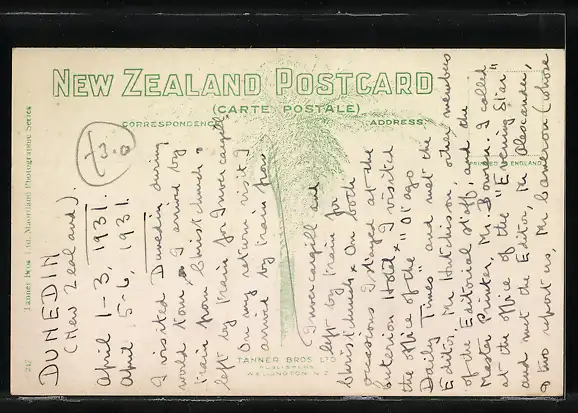 NEW ZEALAND POSTCARD
(CARTE POSTALE)
CORRESPONDENCE
ADDRESS
PRINTED IN ENGLAND
Tanner Bros Ltd. Maoriland Photographic Series
TANNER BROS LTD
PUBLISHERS
WELLINGTON N.Z.
DUNEDIN
(New Zealand).
April 1-3, 1931.
April 5-6, 1931.
I visited Dunedin during
world tour. I arrived by
train from Christchurch &
left by train for Invercargill.
On my return visit I
arrived by train from
Invercargill and
left by train for
Christchurch. On both
occasions I stayed at the
Excelsior Hotel. I visited
the office of the "Otago
Daily Times" and met the
Editor, Mr Hutchison, other members
of the Editorial staff, and the
Master Printer, Mr Bowen. I called
at the office of the "Evening Star"
and met the Editor, Mr Alexander,
& two reporters, Mr Cameron (whose